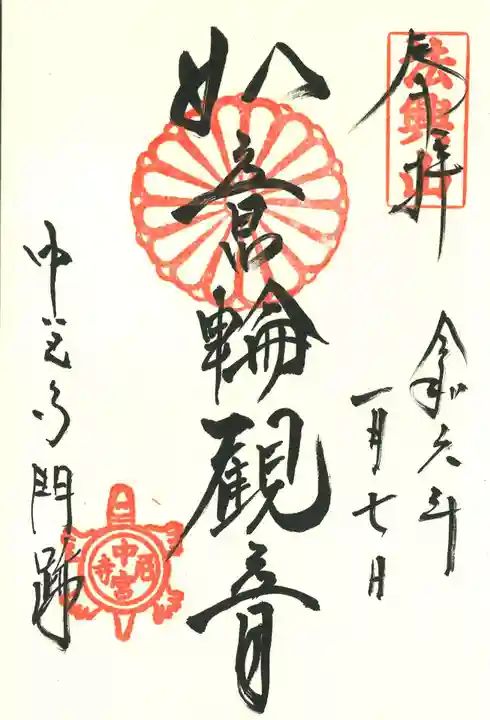 奉拝
法興山
令和六年
一月七日
如意輪觀音
中宮寺門跡
中宮寺